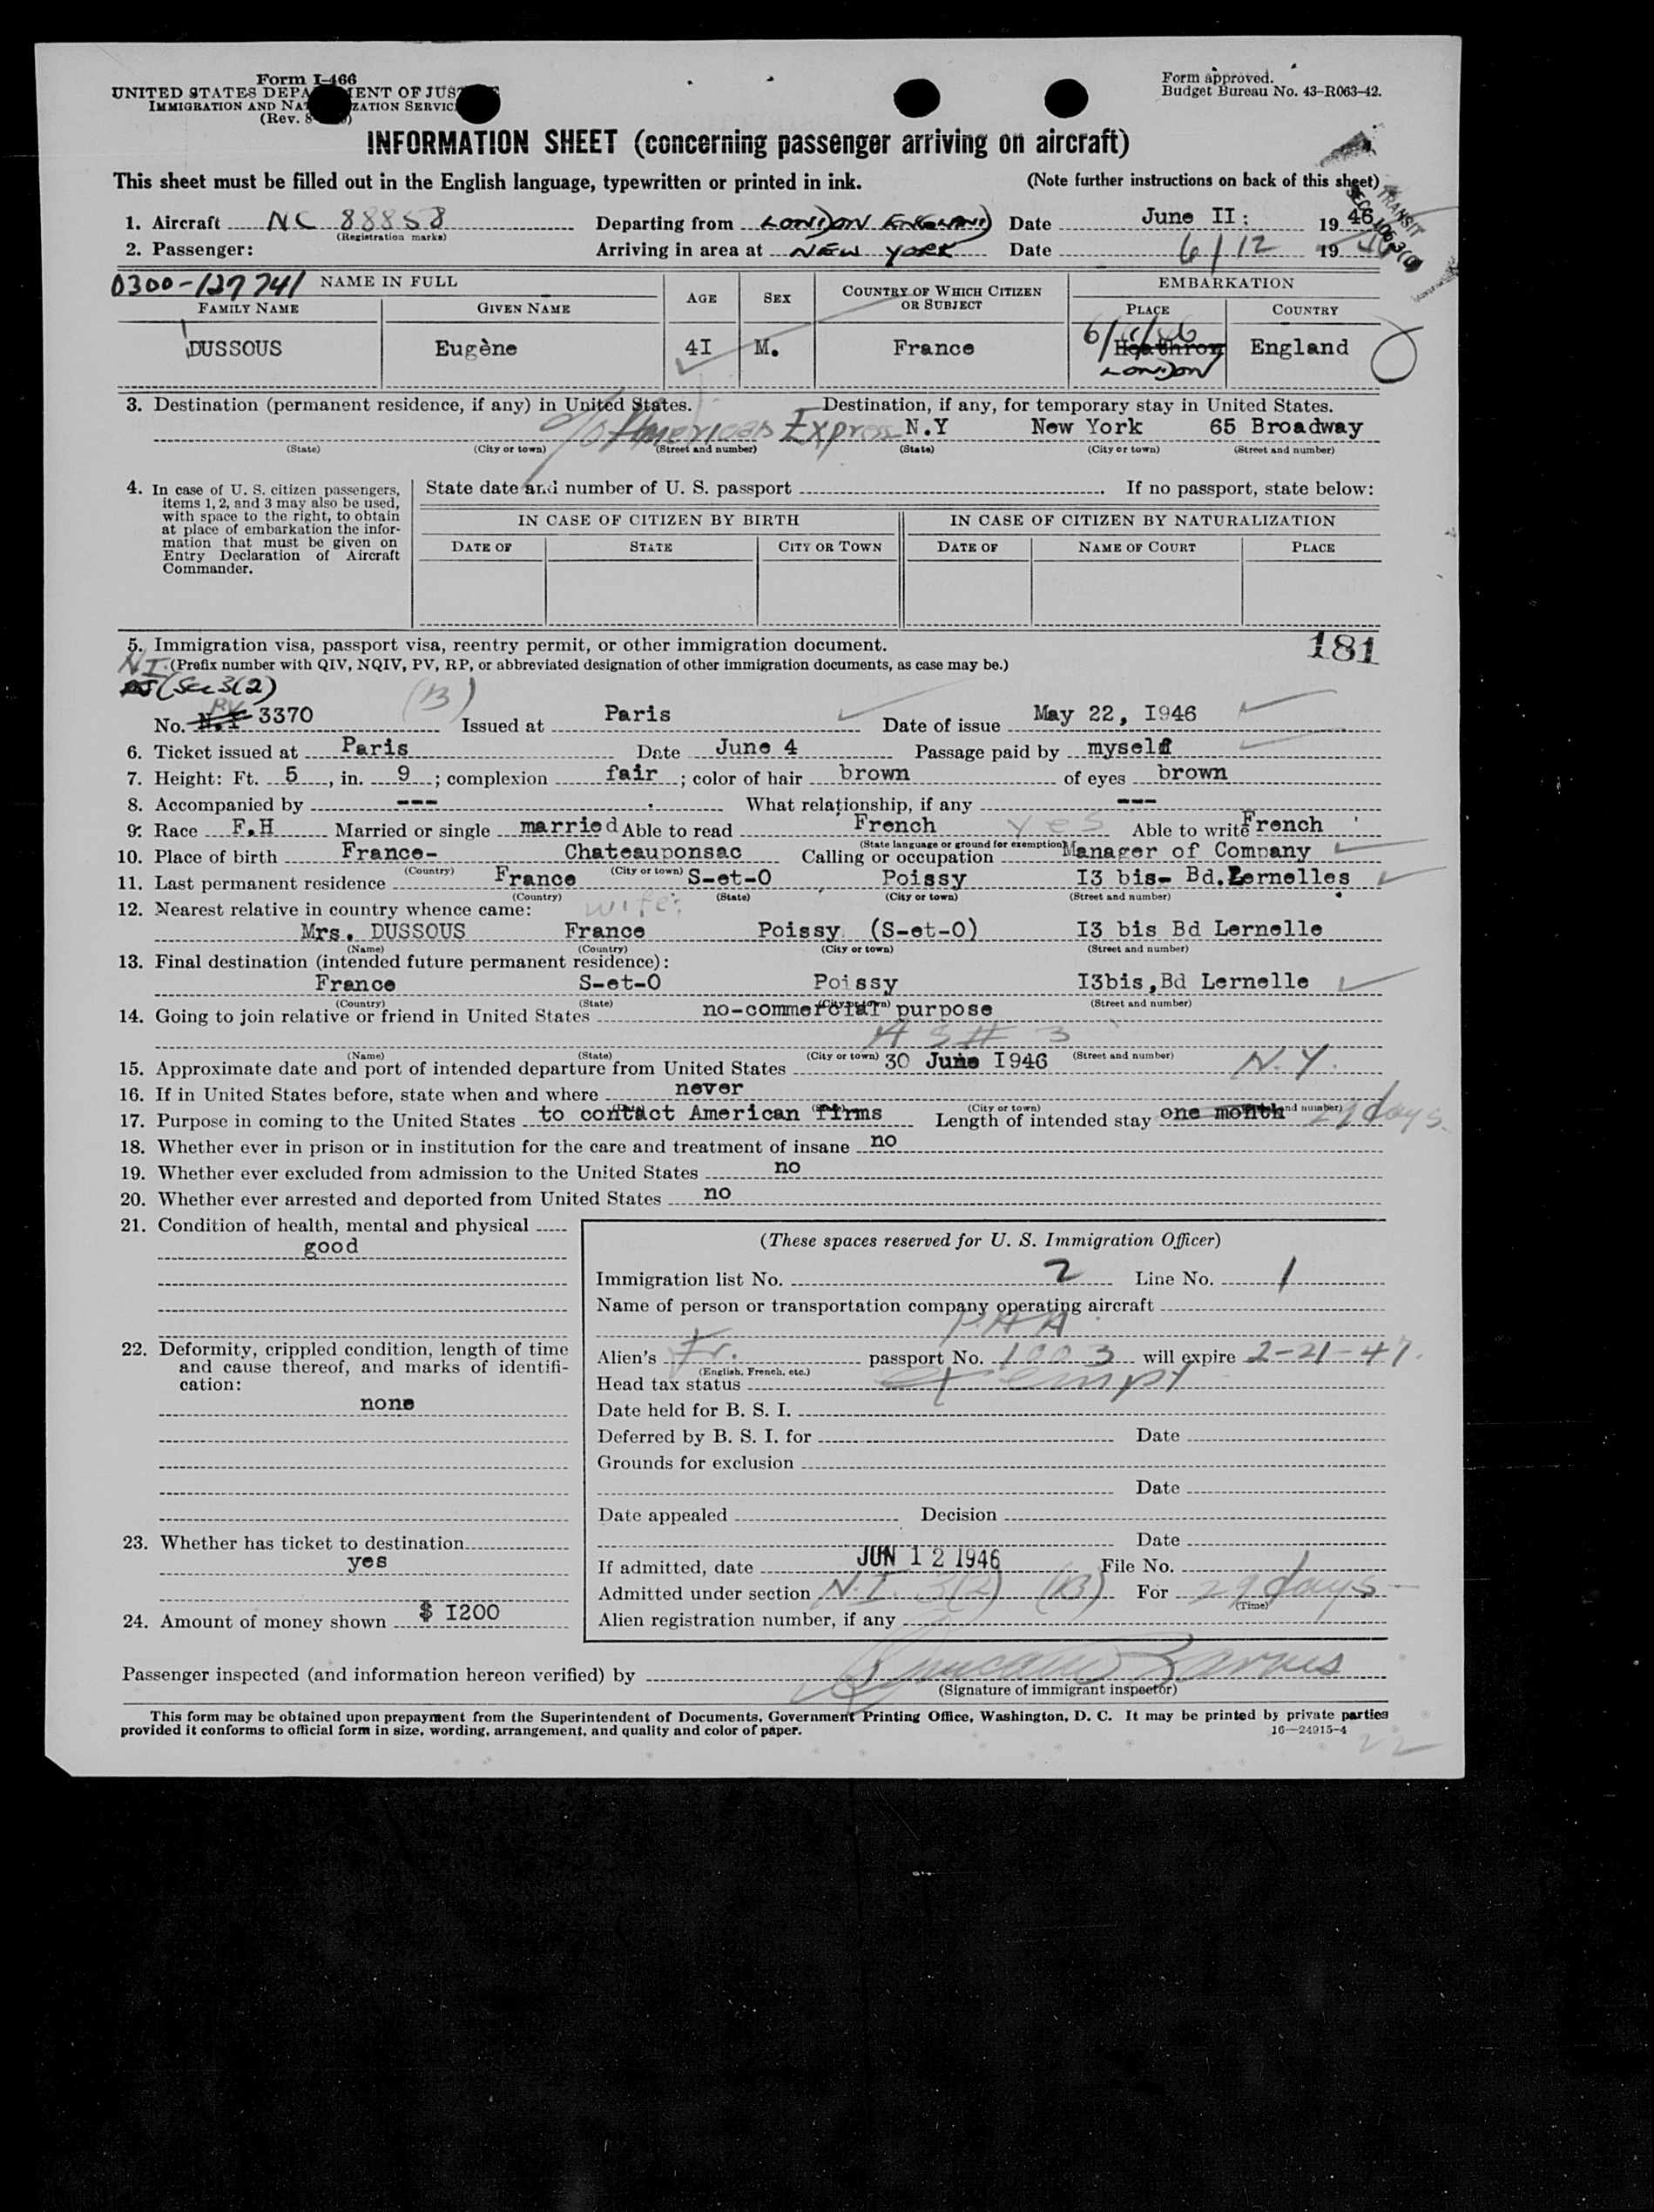 Form I-466
UNITED STATES DEPARTMENT OF JUSTICE
IMMIGRATION AND NATURALIZATION SERVICE
(Rev. 8
Form approved.
Budget Bureau No. 43-R063-42.
INFORMATION SHEET (concerning passenger arriving on aircraft)
This sheet must be filled out in the English language, typewritten or printed in ink. (Note further instructions on back of this sheet)
TRANSIT
1. Aircraft NC 88858 Departing from LONDON ENGLAND Date June II: 19 46
(Registration marks)
2. Passenger: Arriving in area at NEW YORK Date 6/12 19 46
0300-127741 NAME IN FULL AGE SEX COUNTRY OF WHICH CITIZEN OR SUBJECT EMBARKATION
FAMILY NAME GIVEN NAME PLACE COUNTRY
DUSSOUS Eugène 4I M. France Heathrow England
LONDON
3. Destination (permanent residence, if any) in United States. Destination, if any, for temporary stay in United States.
c/o American Express N.Y New York 65 Broadway
(State) (City or town) (Street and number) (State) (City or town) (Street and number)
4. In case of U. S. citizen passengers, items 1, 2, and 3 may also be used, with space to the right, to obtain at place of embarkation the information that must be given on Entry Declaration of Aircraft Commander.
State date and number of U. S. passport . If no passport, state below:
IN CASE OF CITIZEN BY BIRTH IN CASE OF CITIZEN BY NATURALIZATION
DATE OF STATE CITY OR TOWN DATE OF NAME OF COURT PLACE
5. Immigration visa, passport visa, reentry permit, or other immigration document. 181
N.I. (Prefix number with QIV, NQIV, PV, RP, or abbreviated designation of other immigration documents, as case may be.)
(Sec 3(2) (B)
PV
No. N.I 3370 Issued at Paris Date of issue May 22, I946
6. Ticket issued at Paris Date June 4 Passage paid by myself
7. Height: Ft. 5, in. 9; complexion fair; color of hair brown of eyes brown
8. Accompanied by --- What relationship, if any ---
9. Race F.H Married or single married Able to read French yes Able to write French
(State language or ground for exemption)
10. Place of birth France- Chateauponsac Calling or occupation Manager of Company
(Country) (City or town)
11. Last permanent residence France S-et-O Poissy I3 bis- Bd. Lernelles
(Country) (State) (City or town) (Street and number)
12. Nearest relative in country whence came: wife:
Mrs. DUSSOUS France Poissy (S-et-O) I3 bis Bd Lernelle
(Name) (Country) (City or town) (Street and number)
13. Final destination (intended future permanent residence):
France S-et-O Poissy I3bis,Bd Lernelle
(Country) (State) (City or town) (Street and number)
14. Going to join relative or friend in United States no-commercial purpose
(Name) (State) (City or town) (Street and number)
15. Approximate date and port of intended departure from United States 30 June I946 N.Y.
16. If in United States before, state when and where never
(City or town) (Street and number)
17. Purpose in coming to the United States to contact American firms Length of intended stay one month 29 days.
18. Whether ever in prison or in institution for the care and treatment of insane no
19. Whether ever excluded from admission to the United States no
20. Whether ever arrested and deported from United States no
21. Condition of health, mental and physical
good
22. Deformity, crippled condition, length of time and cause thereof, and marks of identification:
none
23. Whether has ticket to destination
yes
24. Amount of money shown $ I200
(These spaces reserved for U. S. Immigration Officer)
Immigration list No. 2 Line No. 1
Name of person or transportation company operating aircraft
PAA
Alien's Fr. passport No. 1003 will expire 2-21-47.
(English, French, etc.)
Head tax status exempt
Date held for B. S. I.
Deferred by B. S. I. for Date
Grounds for exclusion
Date
Date appealed Decision
Date
If admitted, date JUN 12 1946 File No.
Admitted under section N.I. 3(2) (B) For 29 days
(Time)
Alien registration number, if any
Passenger inspected (and information hereon verified) by
(Signature of immigrant inspector)
This form may be obtained upon prepayment from the Superintendent of Documents, Government Printing Office, Washington, D. C. It may be printed by private parties
provided it conforms to official form in size, wording, arrangement, and quality and color of paper. 16—24915-4
22